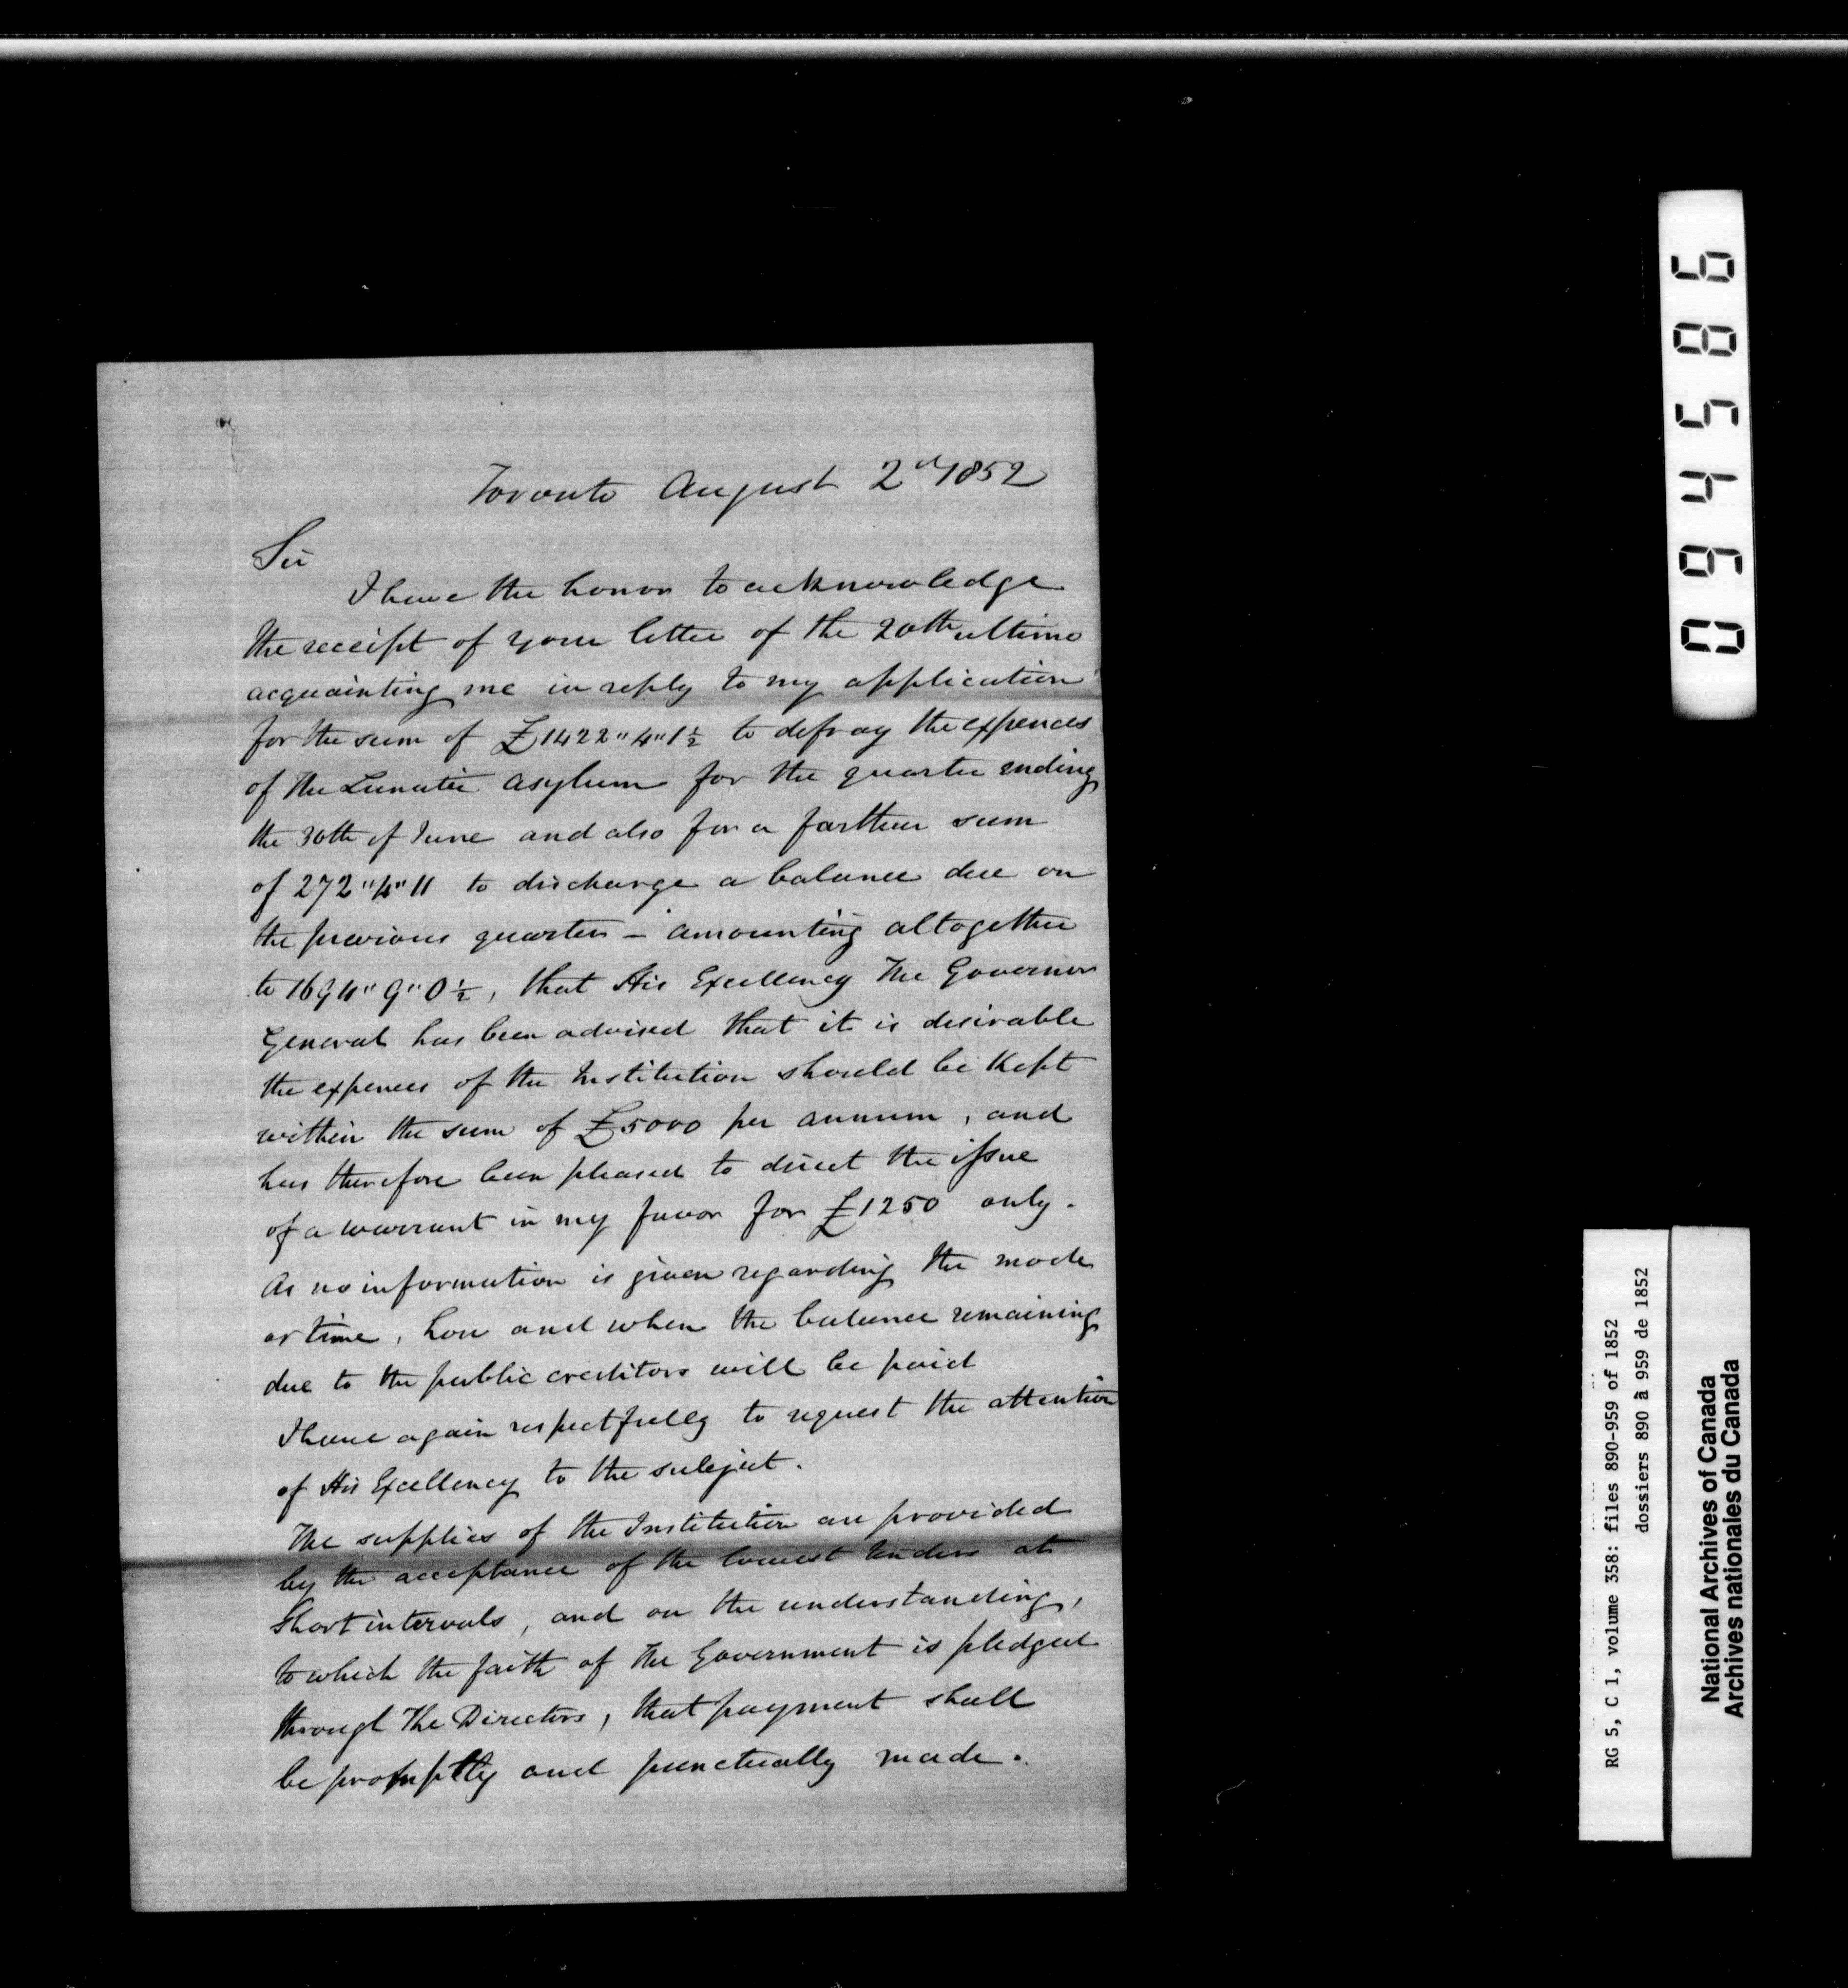 Toronto August 2d/1852
Sir
I have the honor to acknowledge
the receipt of your letter of the 20th ultimo
acquainting me in reply to my application
for the sum of £1422"4"1½ to defray the expences
of the Lunatic Asylum for the quarter ending
the 30th of June and also for a farther sum
of 272"4"11 to discharge a balance due on
the previous quarter – amounting altogether
to 1694"9"0½, that His Excellency The Governor
General has been advised that it is desirable
the expences of the Institution should be kept
within the sum of £5000 per annum, and
has therefore been pleased to direct the issue
of a warrant in my favor for £1250 only.
As no information is given regarding the mode
or time, how and when the balance remaining
due to the public creditors will be paid
I have again respectfully to request the attention
of His Excellency to the subject.
The supplies of the Institution are provided
by the acceptance of the lowest tenders at
short intervals, and on the understanding,
to which the faith of the Government is pledged
through The Directors, that payment shall
be promptly and punctually made.
094586
RG 5, C 1, volume 358: files 890-959 of 1852
dossiers 890 à 959 de 1852
National Archives of Canada
Archives nationales du Canada